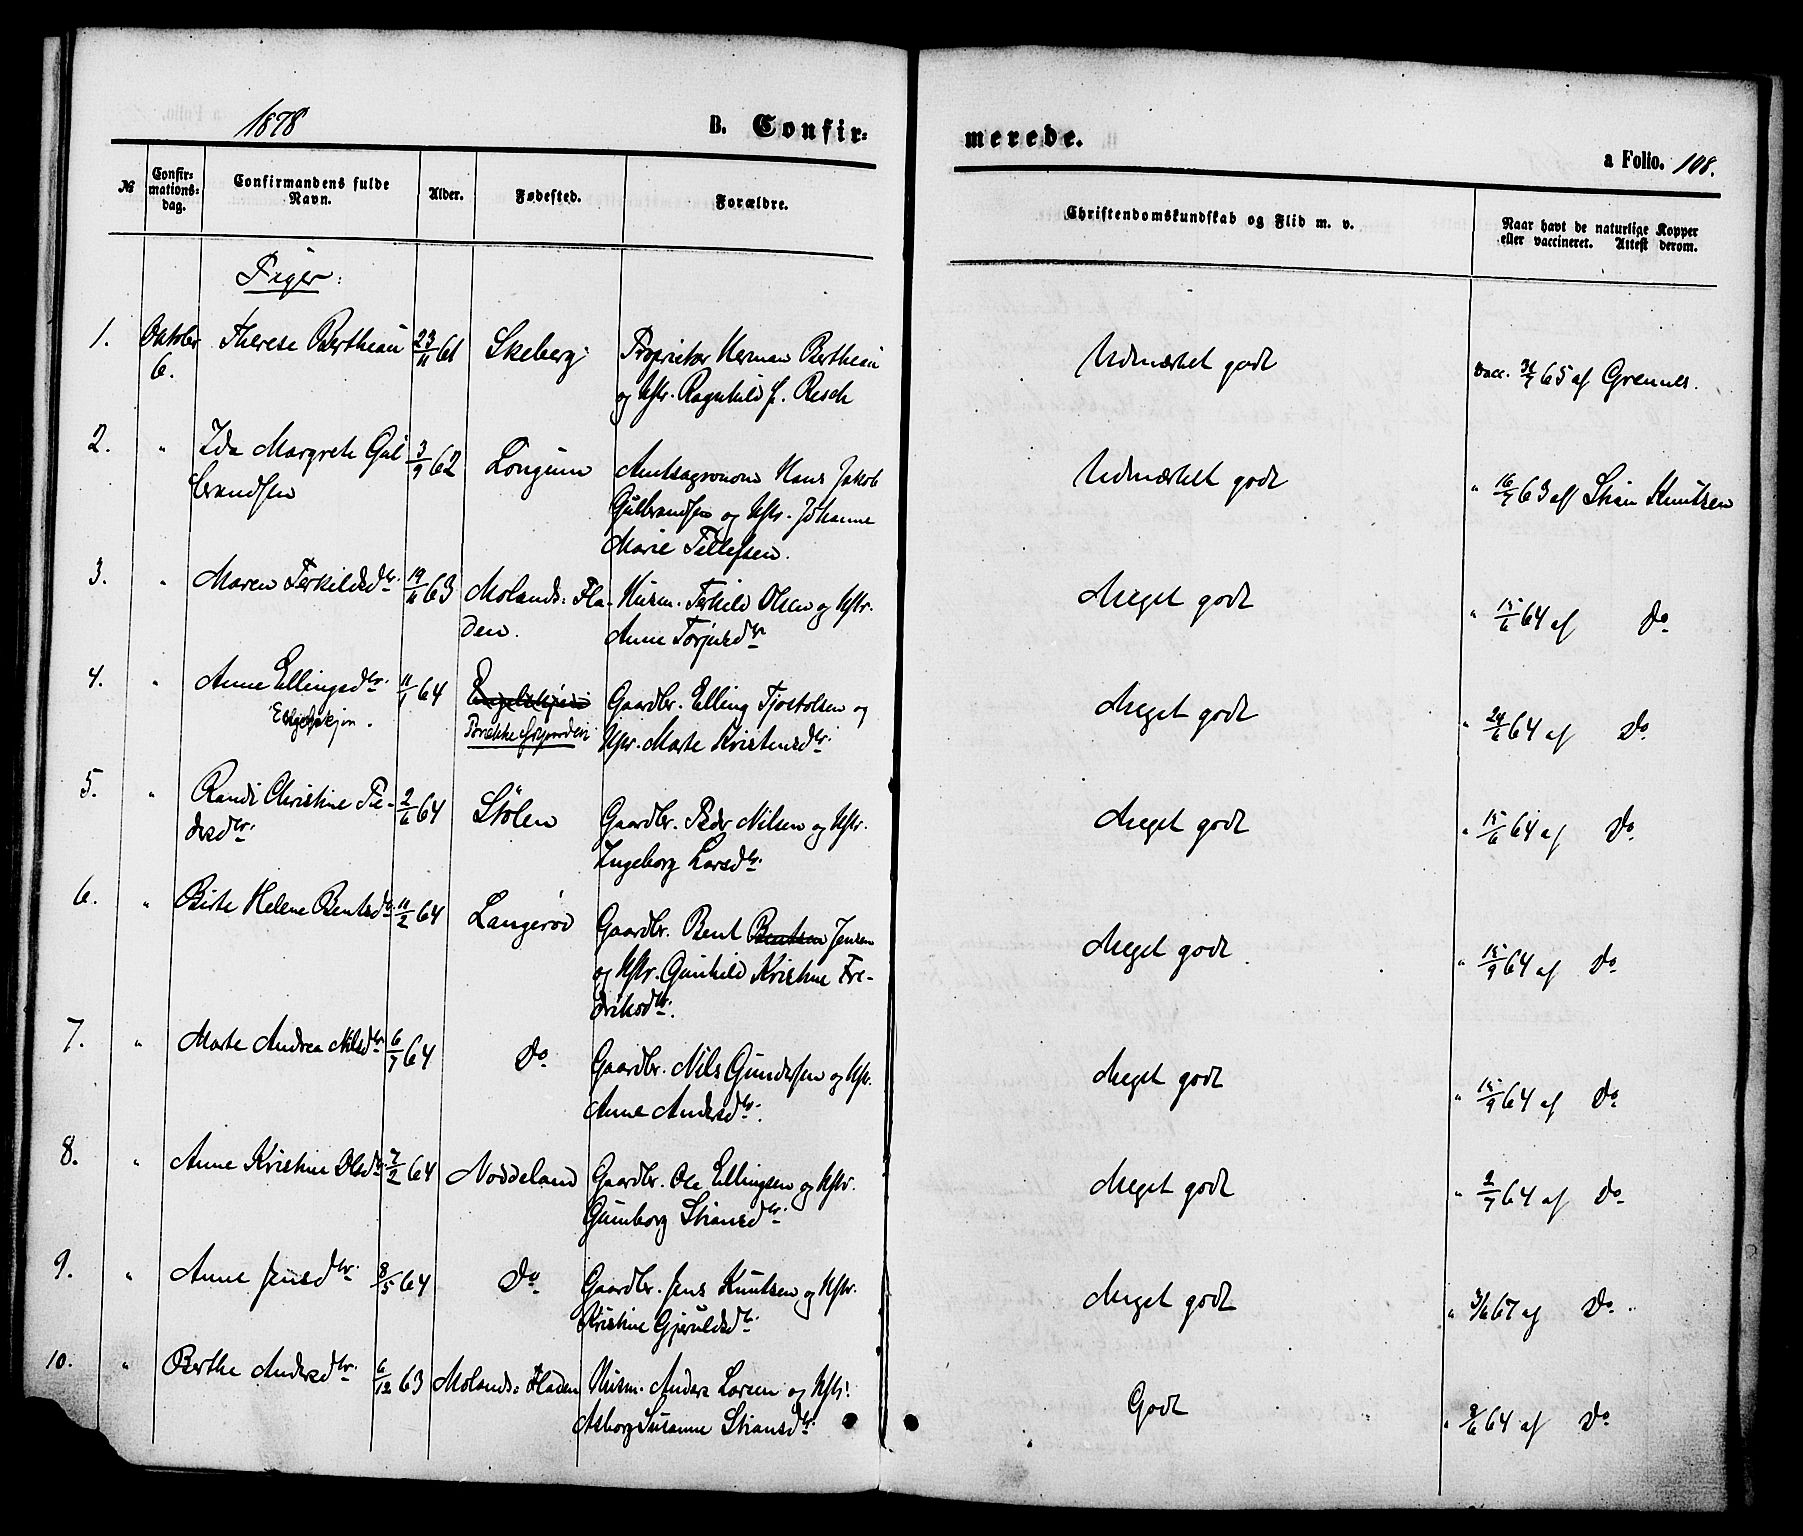 1878
B. Confir-
merede.
a Folio. 108.
№
Confir-
mations-
dag.
Confirmandens fulde
Navn.
Alder.
Fødested.
Forældre.
Christendomskundskab og Flid m. v.
Naar havt de naturlige Kopper
eller vaccineret. Attest derom.
Piger:
1. Oktober Therese Bertheau 23/11 61 Skeberg Proprietær Herman Bertheau Udmærket godt vacc. 31/7 65 af Grennes.
6. og Hstr. Ragnhild f. Resch
2. " Ida Margrete Gul 3/9 62 Longum Amtsagronom Hans Jakob Udmærket godt " 16/7 63 af Stian Knutsen
brandsen Gulbrandsen og Hstr. Johanne
Marie Tellefsen.
3. " Maren Terkildsdtr. 19/11 63 Molands: Fla- Husm. Terkild Olsen og Hstr. Meget godt " 15/6 64 af Do
den. Anne Torjusdtr
4. " Anne Ellingsdtr. 11/1 64 Gaardbr. Elling Tjostolsen og Meget godt " 24/6 64 af Do
Hstr. Marte Kristensdtr.
5. " Randi Christine Pe- 2/6 64 Stølen Gaardbr. Peder Nilsen og Hstr. Meget godt " 15/6 64 af Do
dersdtr. Ingeborg Larsdtr.
6. " Birte Helene Bentsdtr. 11/2 64 Langerød Gaardbr. Bent Bentsen Jensen Meget godt " 15/9 64 af Do
og Hstr. Gunhild Kristine Fre-
driksdtr.
7. " Marte Andrea Nilsdtr 6/7 64 Do Gaardbr. Nils Gundersen og Hstr. Meget godt " 15/9 64 af Do
Anne Andersdtr.
8. " Anne Kristine Olsdtr. 7/2 64 Noddeland Gaardbr. Ole Ellingsen og Hstr. Meget godt " 2/7 64 af Do
Gunborg Stiansdtr.
9. " Anne Jensdtr. 8/5 64 Do Gaardbr. Jens Knutsen og Hstr. Meget godt " 3/6 67 af Do
Kristine Gjeruldsdtr.
10. " Berthe Andersdtr. 6/12 63 Molands: Fladen Husm. Anders Larsen og Hstr. Godt " 8/6 64 af Do
Asborg Susanne Stiansdtr.